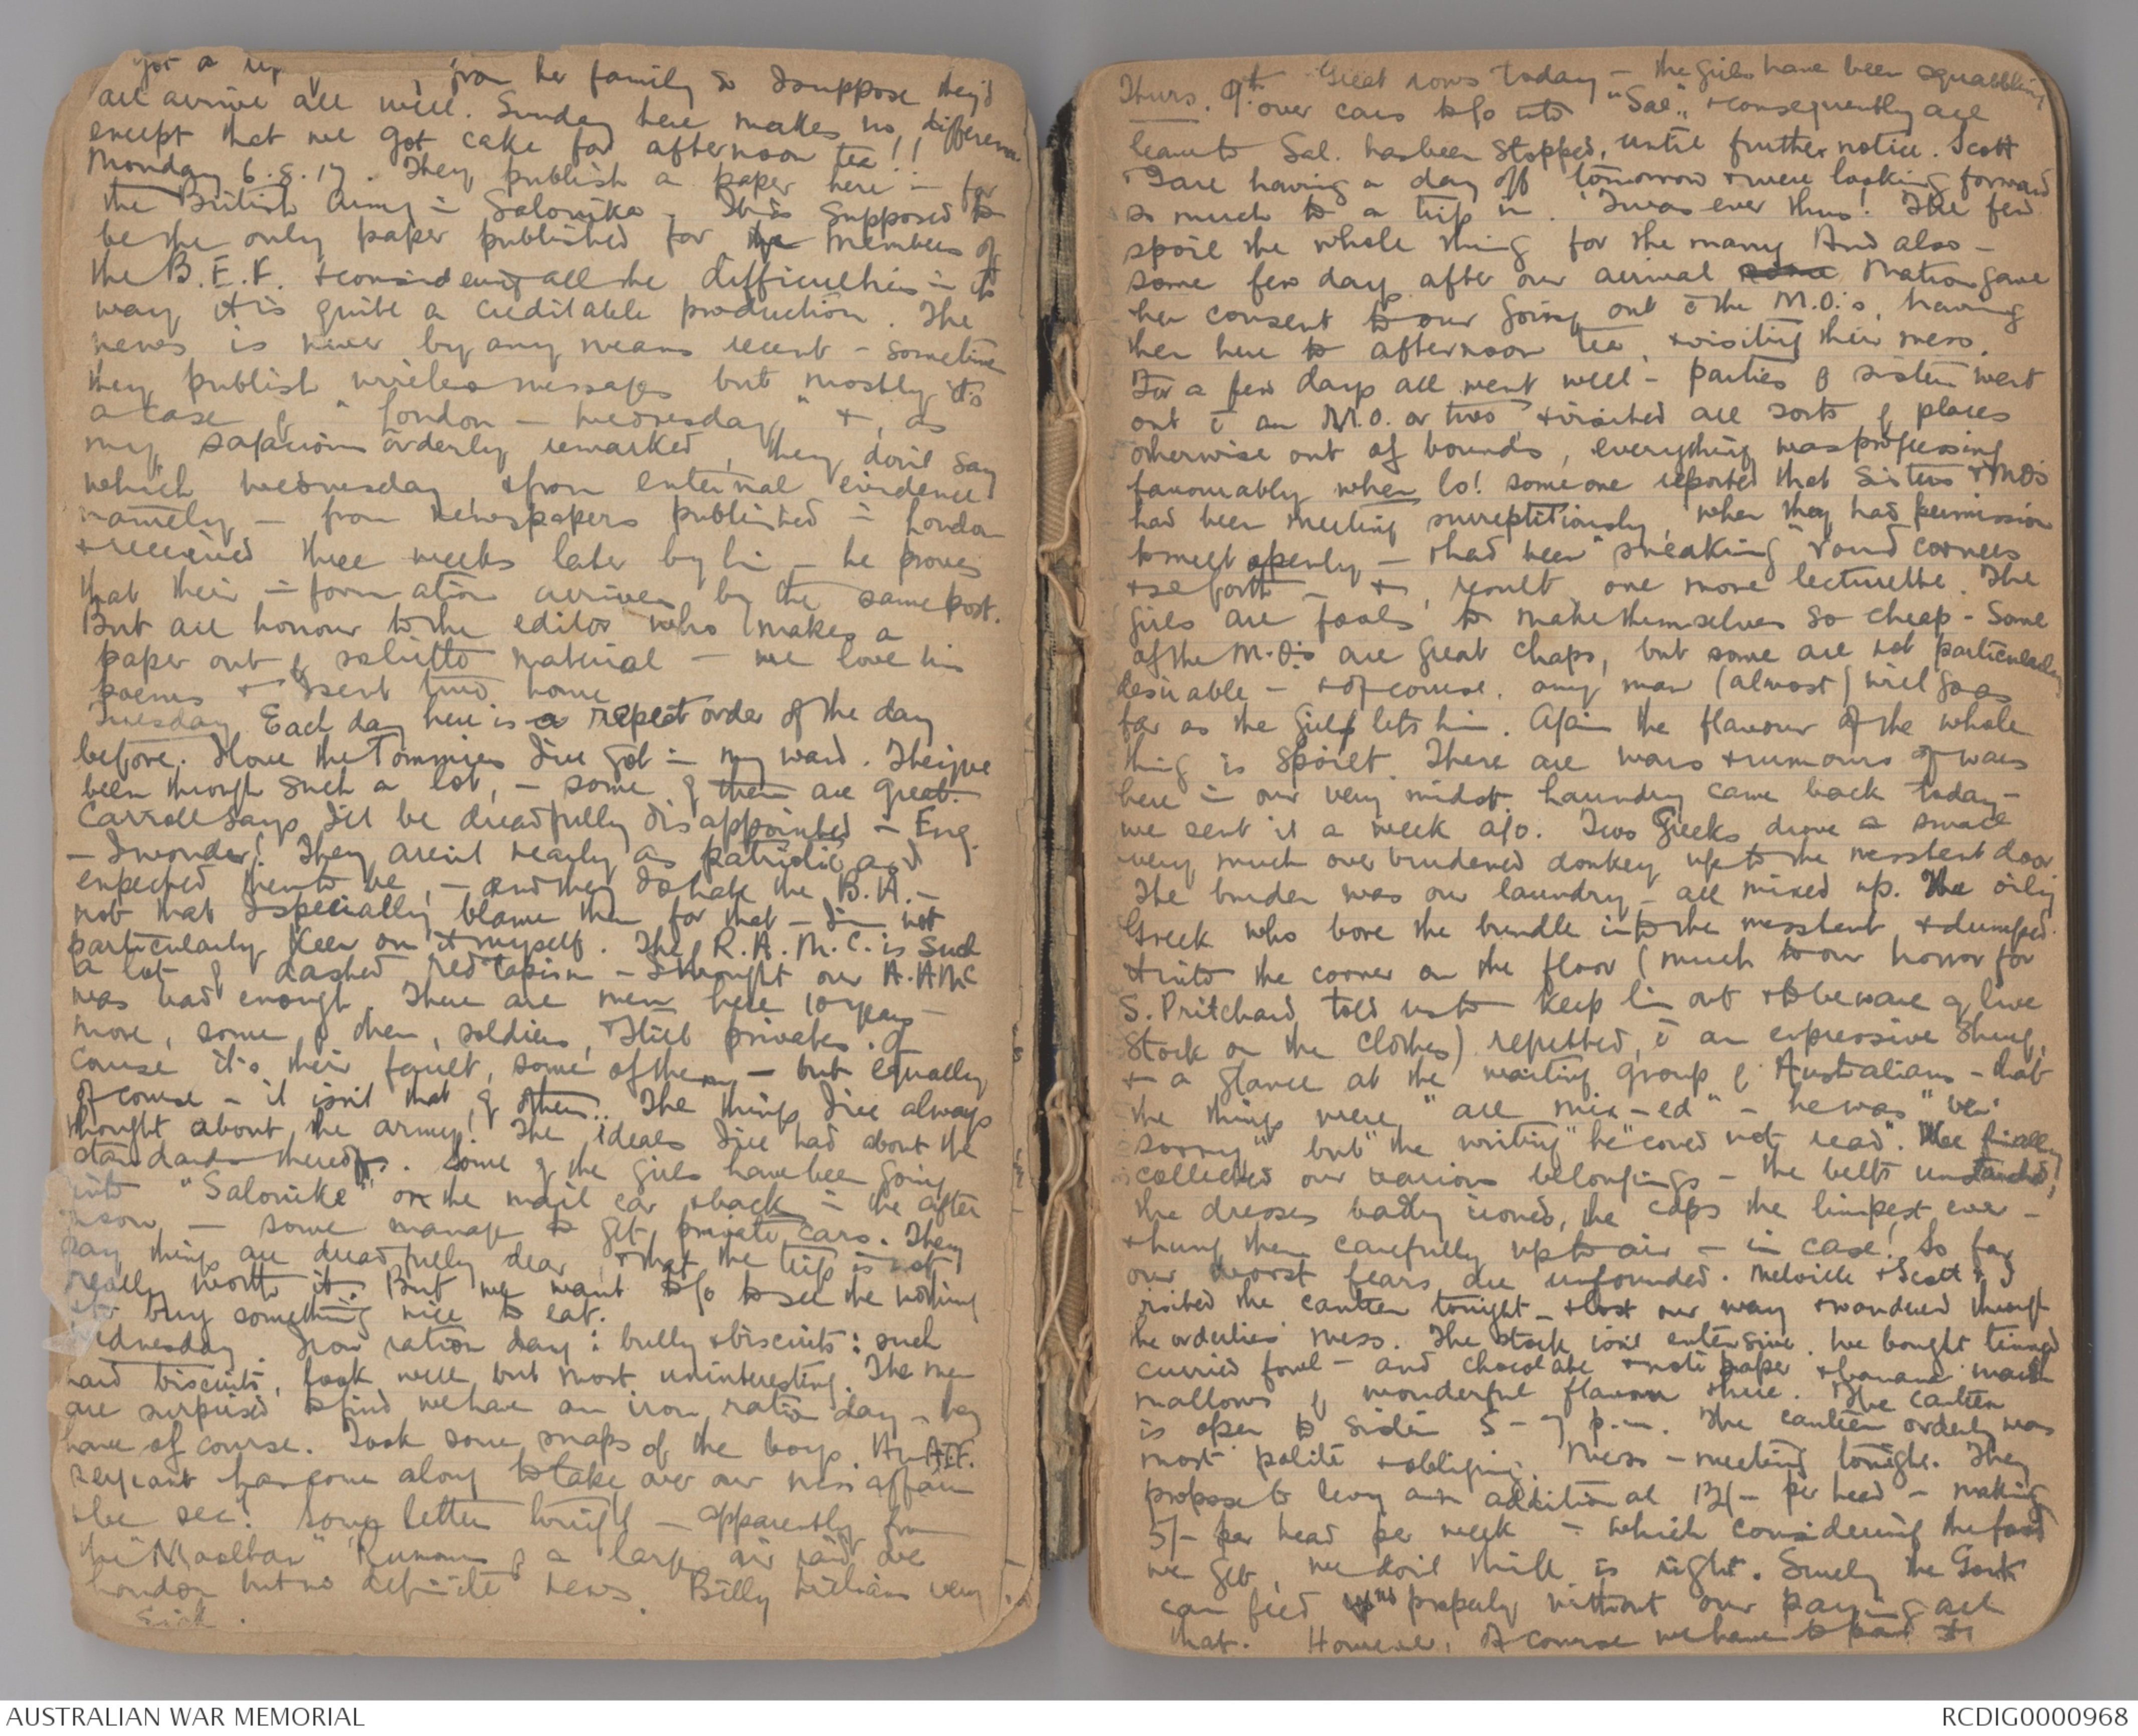 got a , from her family so I suppose they'd
all arrive all well. Sunday here makes no difference
except that we got cake for afternoon tea!!
Monday 6.8.17. They publish a paper here - for
the British Army in Salonika. It is supposed to
be the only paper published for the members of
the B.E.F. & considering all the difficulties in its
way it is quite a creditable production. The
news is never by any means recent - sometimes
they publish wireless messages but mostly it's
a case of "London - Wednesday" &, as
my sagacious orderly remarked, they don't say
which Wednesday, & from external evidence
namely - from newspapers published in London
& received three weeks later by him - he proves
that their information arrives by the same post.
But all honour to the editor who makes a
paper out of material - we love his
poems & I sent two home
Tuesday Each day here is a repeat order of the day
before. I love the Tommies I've got in my ward. They've
been through such a lot, - some of them are great.
Carroll says I'll be dreadfully disappointed in Eng.
- I wonder! They aren't nearly as patriotic as I
expected them to be, - and they do hate the B.A. -
not that I specially blame them for that - I'm not
particularly keen on it myself. The R.A.M.C. is such
a lot of dashed red tapism - I thought our A.AMC
was bad enough. There are men here 10 years -
more, some of them, soldiers, & still privates. Of
course it's their fault, some of them - but equally
of course - it isn't that, of others.. The things I've always
thought about the army! The ideals I've had about the
standards thereof. Some of the girls have been going
into "Salonike" on the mail car & back in the after
noon - some manage to get private cars. They
say things are dreadfully dear, & that the trip is not
really worth it. But we want to go to see the nothing
& to buy something nice to eat.
Wednesday. Iron ration day: bully & biscuits: such
hard biscuits, look well but most uninteresting. The men
are surprised to find we have an iron ration day - they
have of course. Took some snaps of the boys. An AIF.
sergeant has come along to take over our mess affairs
& be sec! Some letters tonight - apparently from
the "Mooltan" Rumours of a large air raid over
London but no definite news. Billy Williams very
sick.
Thurs. 9th. Great rows today - the girls have been squabbling
over cars to go into "Sal", & consequently all
leave to Sal. has been stopped, until further notice. Scott
& I are having a day off tomorrow & were looking forward
so much to a trip in. 'Twas ever thus! The few
spoil the whole thing for the many And also -
some few days after our arrival Matron gave
her consent to our going out c̄ the M.O.'s, having
them here to afternoon tea, & visiting their mess.
For a few days all went well - parties of sisters went
out c̄ an M.O. or two, & visited all sorts of places
otherwise out of bounds, everything was progressing
favourably when lo! someone reported that Sisters & MO's
had been meeting surreptitiously, when they had permission
to meet openly - & had been "sneaking" round corners
& so forth - & , result one more lecturette. The
girls are fools to make themselves so cheap - Some
of the M.O.'s are great chaps, but some are not particularly
desirable - & of course. any man (almost) will go as
far as the girls lets him. Again the flavour of the whole
thing is spoilt. There are wars & rumours of wars
here in our very midst. Laundry came back today -
we sent it a week ago. Two Greeks drove a small
very much over burdened donkey up to the messtent door
The burden was our laundry - all mixed up. The oily
Greek who bore the bundle into the messtent & dumped
it into the corner on the floor (much to our horror for
S. Pritchard told us to keep him out & to beware of live
stock on the clothes) regretted, c̄ an expressive shrug,
& a glance at the waiting group of Australians - that
the things were "all mix-ed" - he was "ver'
sorry" but "the writing" he "coued not read". We finally
collected our various belongings - the belts unstarched,
the dresses badly ironed, the caps the limpest ever -
& hung them carefully up to air - in case! So far
our worst fears are unfounded. Melville & Scott & I
visited the canteen tonight - & lost our way & wandered through
the orderlies' mess. The stock isn't extensive. We bought tinned
curried fowl - and chocolate & note paper & banana marsh
mallows of wonderful flavour there. The canteen
is open to sisters 5-7 p.m. The canteen orderly was
most polite & obliging. Mess-meeting tonight. They
propose to levy an additional per head - making
5/- per head per week - which considering the food
we get, we don't think is right. Surely the Govt
can feed us properly without our paying all
that. However, of course we have to pay it
AUSTRALIAN WAR MEMORIAL
RCDIG0000968